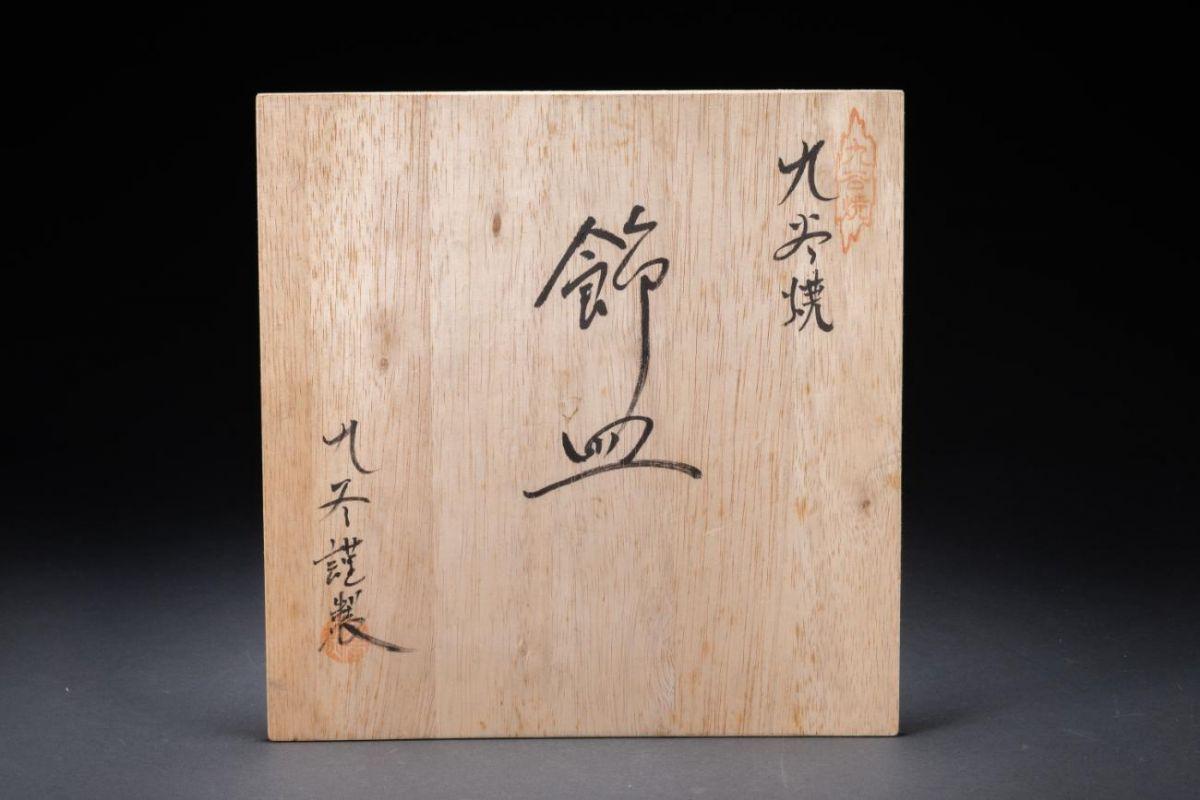 九谷焼
九谷焼
飾皿
九谷謹製